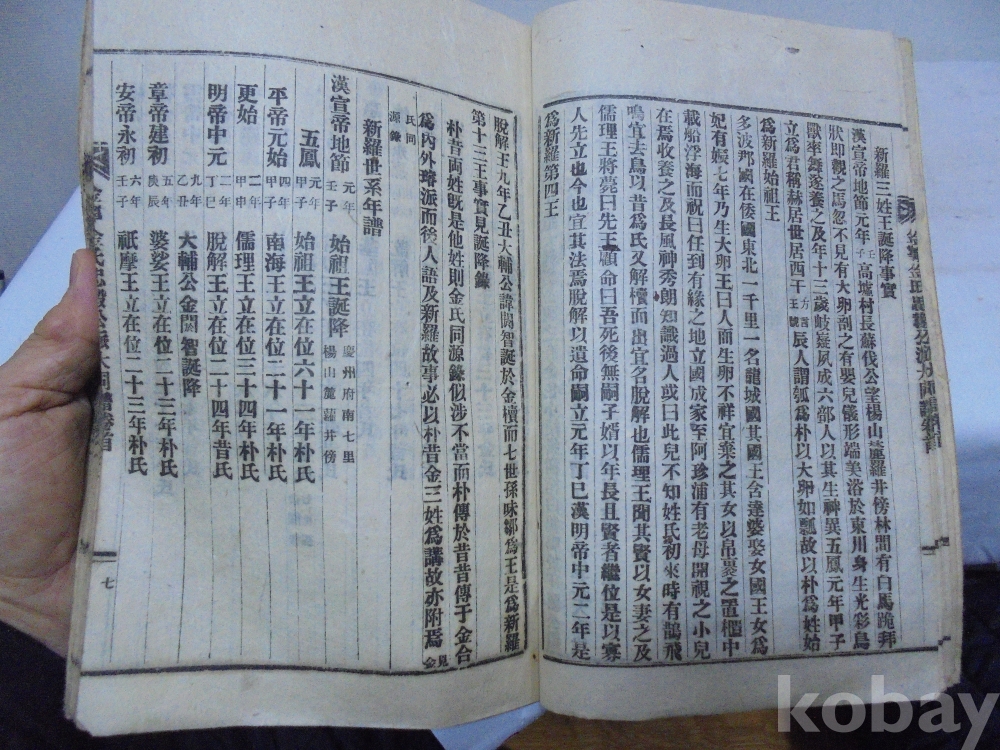 新羅三姓王誕降事實
漢宣帝地節元年壬子高墟村長蘇伐公望楊山麓羅井傍林間有白馬跪拜
狀卽觀之馬忽不見有大卵剖之有嬰兒儀形端美浴於東川身生光彩鳥
獸率舞遂養之及年十三歲岐嶷夙成六部人以其生神異五鳳元年甲子
立爲君稱赫居世居西干方言王號辰人謂瓠爲朴以大卵如瓢故以朴爲姓始
爲新羅始祖王
多波那國在倭國東北一千里一名龍城國其國王含達婆娶女國王女爲
妃有娠七年乃生大卵王曰人而生卵不祥宜棄之其女以帛裹之置櫃中
載船浮海而祝曰任到有緣之地立國成家至阿珍浦有老母開視之小兒
在焉收養之及長風神秀朗知識過人或曰此兒不知姓氏初來時有鵲飛
鳴宜去鳥以昔爲氏又解櫝而出宜名脫解也儒理王聞其賢以女妻之及
儒理王將薨曰先王顧命曰吾死後無嗣子婿以年長且賢者繼位是以寡
人先立也今也宜其法焉脫解以遺命嗣立元年丁巳漢明帝中元二年是
爲新羅第四王
脫解王九年乙丑大輔公諱閼智誕於金櫝而七世孫味鄒爲王是爲新羅
第十三王事實見誕降錄
朴昔兩姓旣是他姓則金氏同源錄似涉不當而朴傳於昔昔傳于金合
爲內外䍧派而後人語及新羅故事必以朴昔金三姓爲講故亦附焉見金
氏同
源錄
新羅世系年譜
漢宣帝地節元年壬子 始祖王誕降慶州府南七里楊山麓蘿井傍
五鳳元年甲子 始祖王立在位六十一年朴氏
平帝元始四年甲子 南海王立在位二十一年朴氏
更始二年甲申 儒理王立在位三十四年朴氏
明帝中元二年丁巳 脫解王立在位二十四年昔氏
九年乙丑 大輔公金閼智誕降
章帝建初五年庚辰 婆娑王立在位二十三年朴氏
安帝永初六年壬子 祇摩王立在位二十三年朴氏
七
kobay